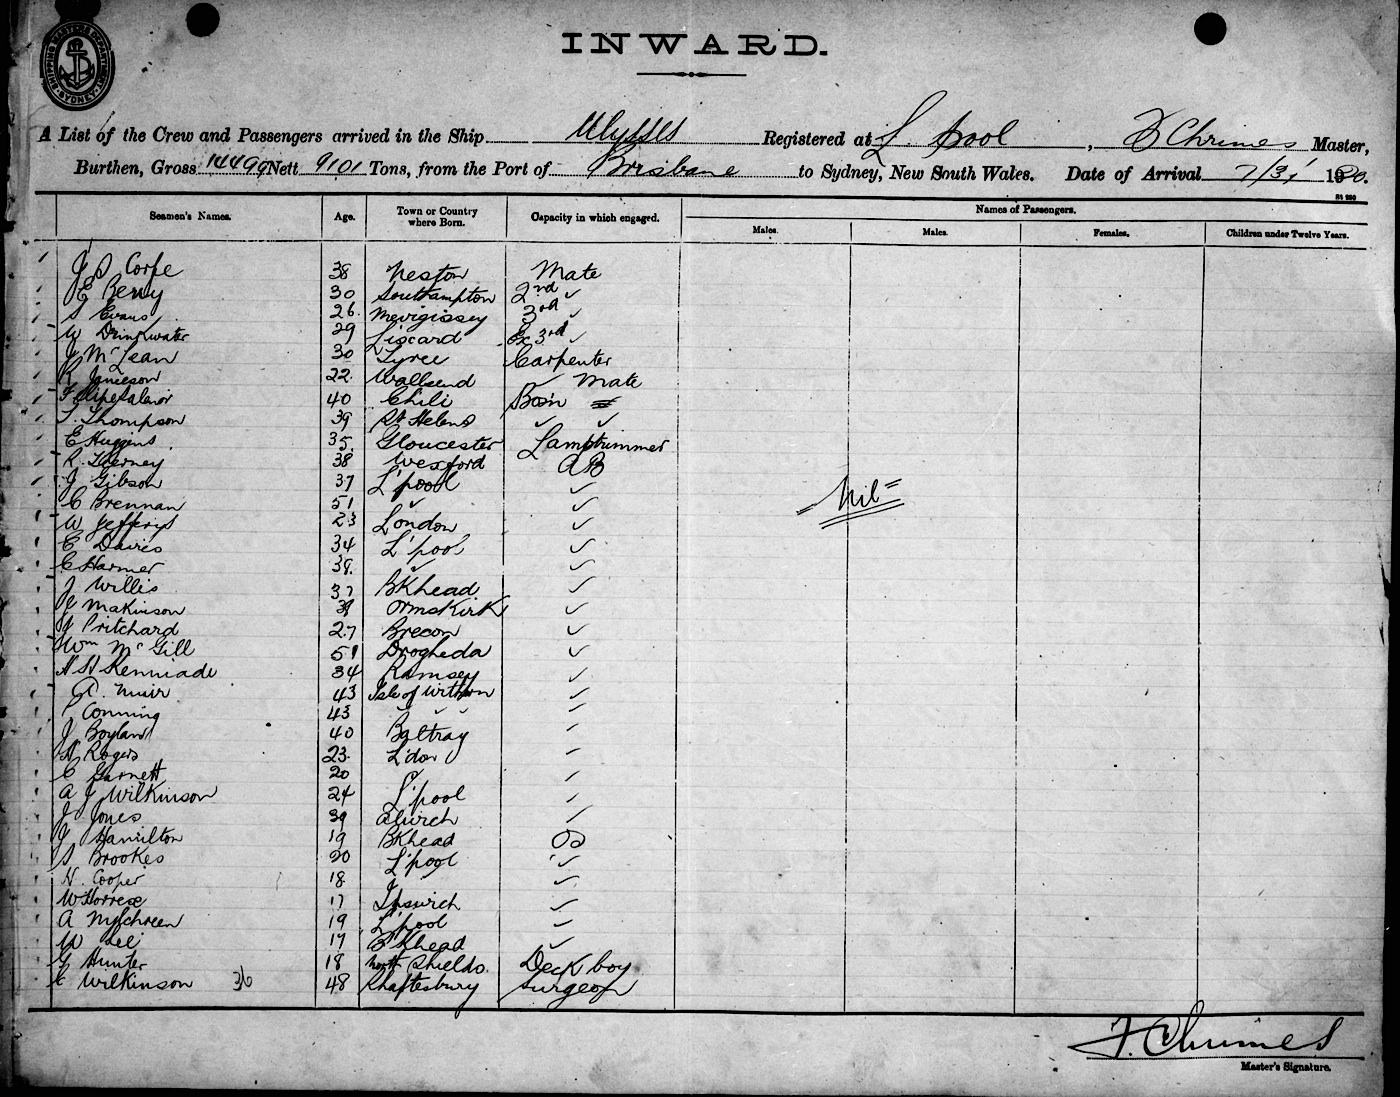 SHIPPING MASTERS DEPARTMENT SYDNEY
INWARD.
A List of the Crew and Passengers arrived in the Ship Ulysses Registered at L'pool, F Chrimes Master,
Burthen, Gross 14499 Nett 9101 Tons, from the Port of Brisbane to Sydney, New South Wales. Date of Arrival 7/3/ 1920.
Seamen's Names. Age. Town or Country where Born. Capacity in which engaged. Names of Passengers.
Males. Males. Females. Children under Twelve Years.
J S Corfe 38 Neston Mate
E Berry 30 Southampton 2nd ✓
S Evans 26 Mevigissey 3rd ✓
W Drinkwater 29 Liscard Ex 3rd ✓
J McLean 30 Tyree Carpenter
R Jamieson 22 Wallsend ✓ Mate
40 Chili Bos'n
T. Thompson 39 St Helens ✓ ✓
E Huggins 35 Gloucester Lamptrimmer
R. Tierney 38 Wexford AB
J Gibson 37 L'pool ✓
C Brennan 51 ✓ ✓
W Jefferys 23 London ✓
E Davies 34 L'pool ✓
C Harmer 38 ✓ ✓
J Willis 37 BKhead ✓
J Makinson 39 Ormskirk ✓
J Pritchard 27 Brecon ✓
Wm McGill 51 Drogheda ✓
H Kenniade 34 Ramsey ✓
A. Muir 43 Isle of Withorn ✓
P Conning 43 ✓ ✓ ✓ ✓
J Boylan 40 Baltray ✓
H Rogers 23 L'don ✓
C Garnett 20 ✓
A J Wilkinson 24 L'pool ✓
J Jones 39 ✓
J Hamilton 19 BKhead OS
S Brookes 20 L'pool ✓
H. Cooper 18 ✓
W 17 Ipswich ✓
A Mylchreen 19 L'pool ✓
W Lee 17 B'Khead ✓
G Hunter 18 North Shields. Deck boy
C Wilkinson 36 48 Shaftesbury Surgeon
Nil
F. Chrimes
Master's Signature.